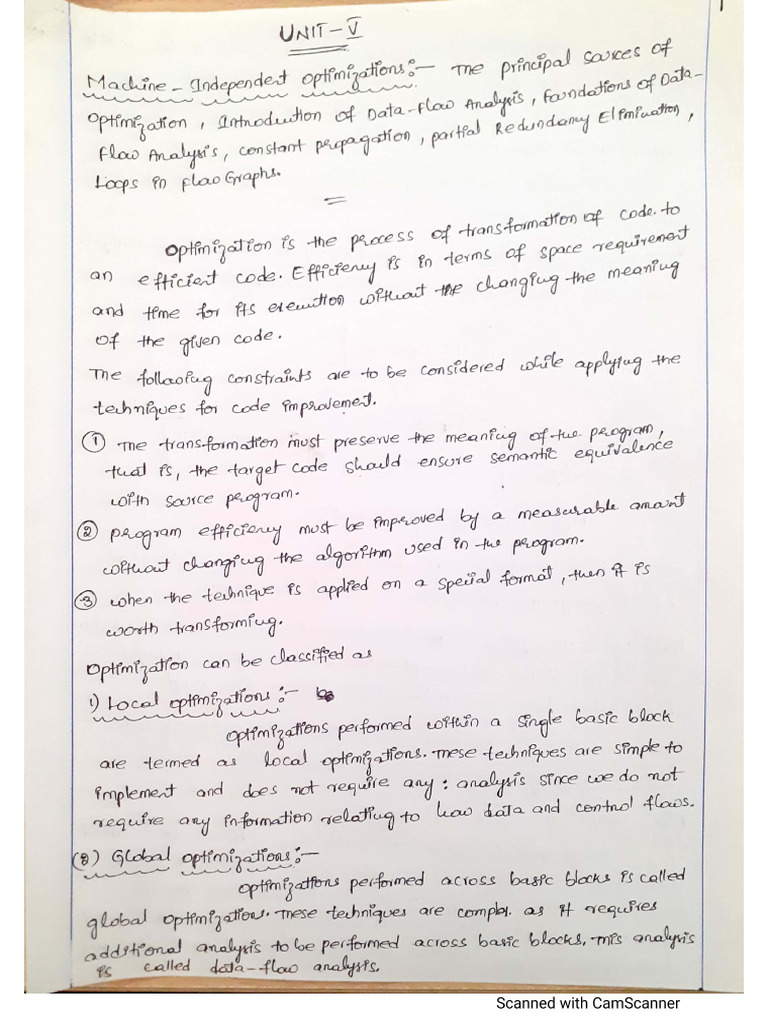 1
UNIT-V
Machine-Independent Optimizations:- The principal sources of
Optimization, Introduction of Data-Flow Analysis, Foundations of Data-
Flow Analysis, constant propagation, partial Redundancy Elimination,
Loops in Flow Graphs.
=
Optimization is the process of transformation of code to
an efficient code. Efficiency is in terms of space requirement
and time for its execution without the changing the meaning
of the given code.
The following constraints are to be considered while applying the
techniques for code improvement.
1 The transformation must preserve the meaning of the program,
that is, the target code should ensure semantic equivalence
with source program.
2 program efficiency must be improved by a measurable amount
without changing the algorithm used in the program.
3 when the technique is applied on a special format, then it is
worth transforming.
Optimization can be classified as
1) Local optimizations:-
Optimizations performed within a single basic block
are termed as local optimizations. These techniques are simple to
implement and does not require any: analysis since we do not
require any information relating to how data and control flows.
(2) Global optimizations:-
Optimizations performed across basic blocks is called
global optimizations. These techniques are complex. as it requires
additional analysis to be performed across basic blocks. This analysis
is called data-flow analysis.
Scanned with CamScanner